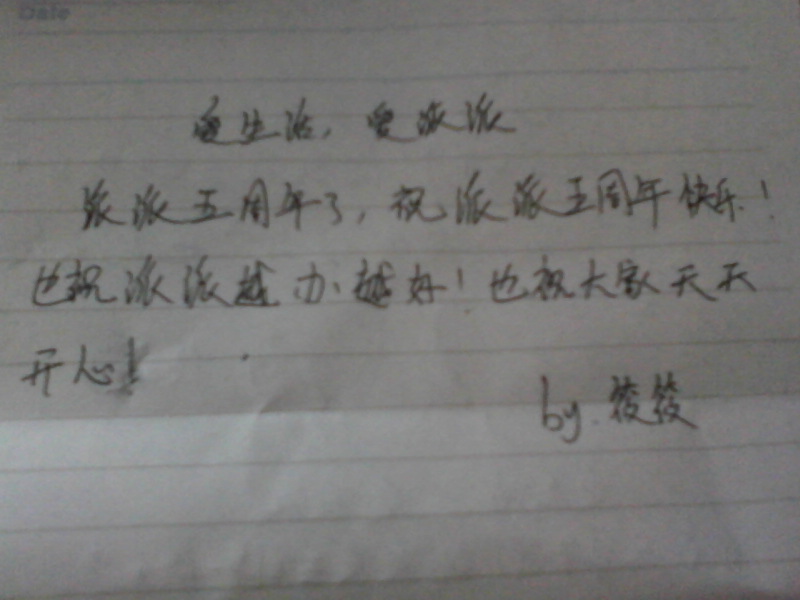 Date
爱生活，爱派派
派派五周年了，祝派派五周年快乐！
也祝派派越办越好！也祝大家天天
开心！
by